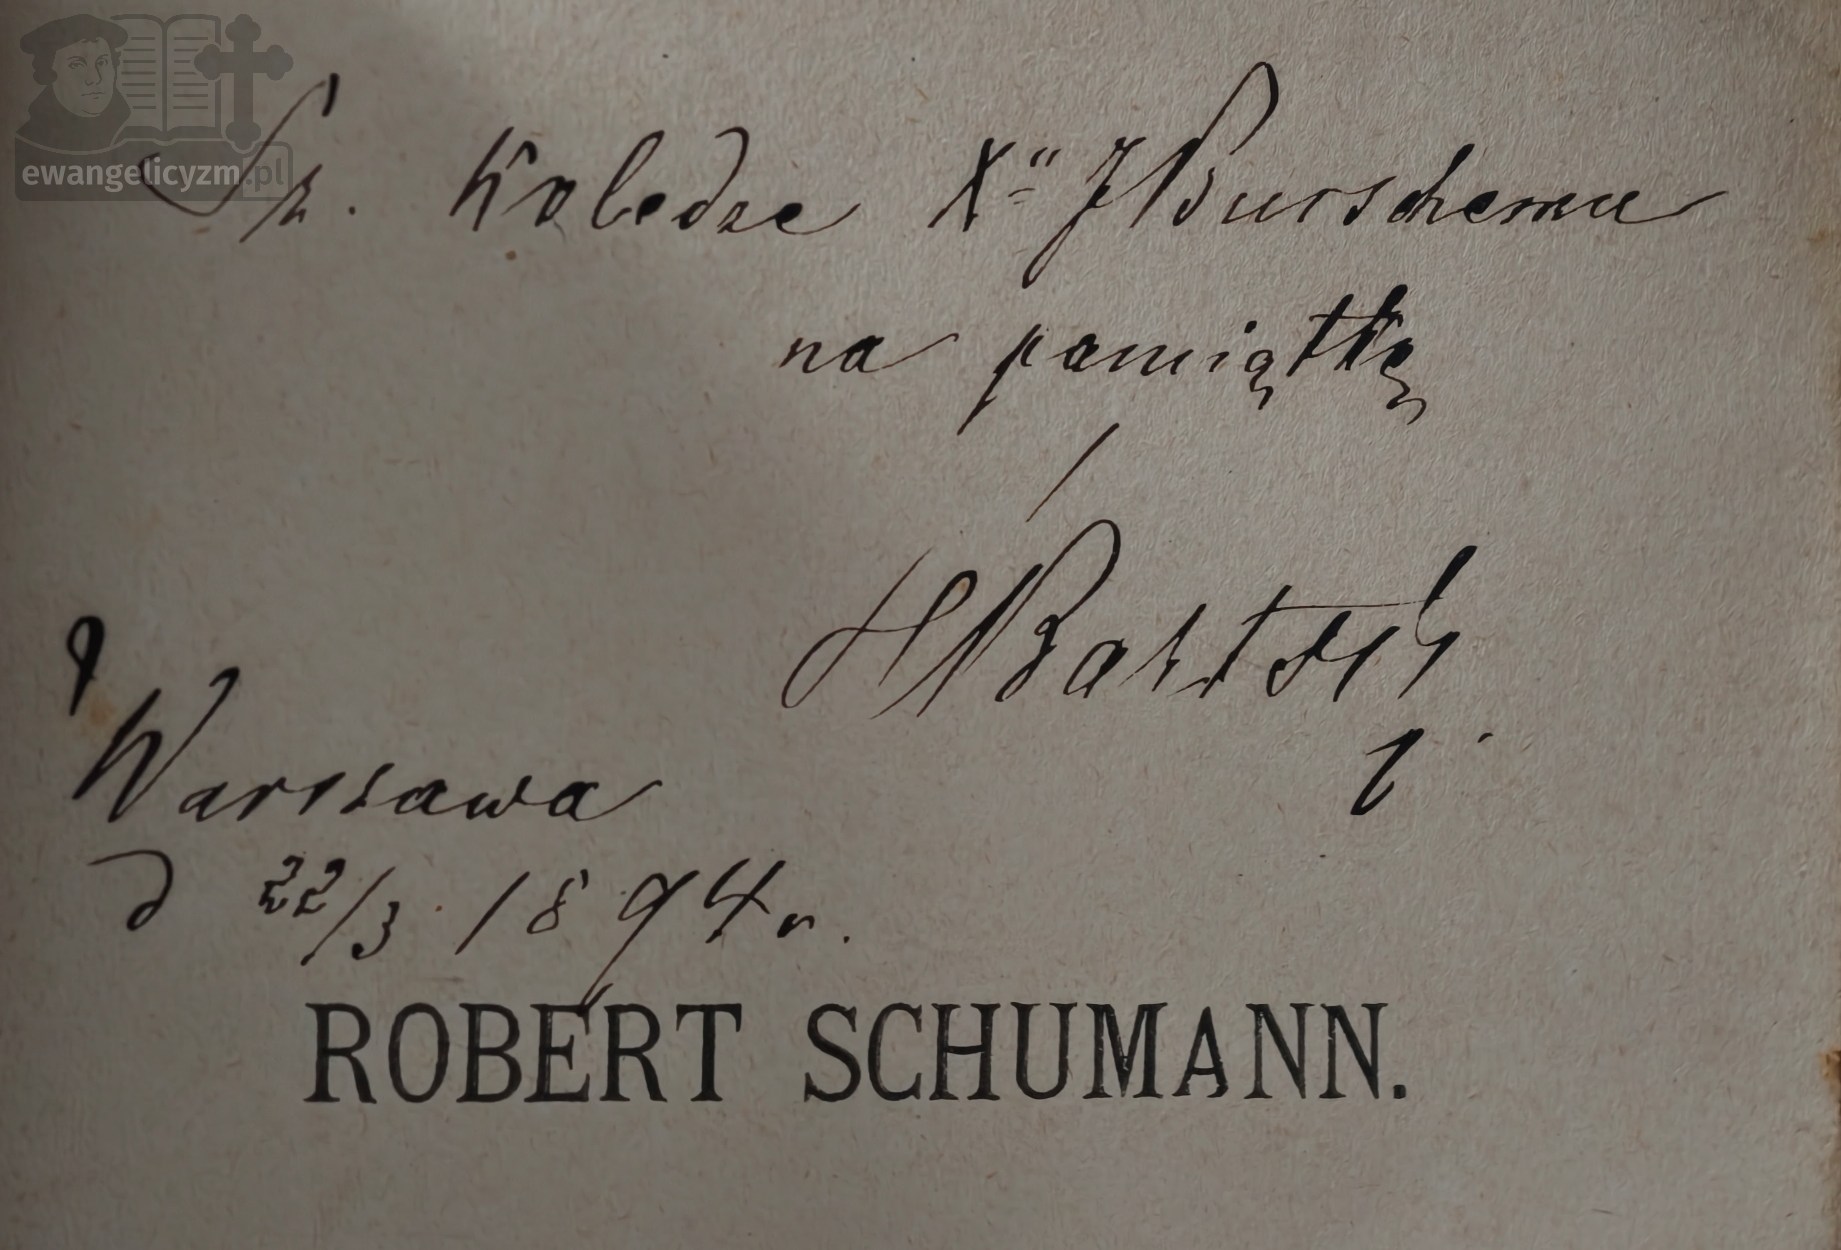 ewangelicyzm.pl
Sz. Koledze X" J Burschemu
na pamiątkę
HBartsch
Warszawa
d 22/3 1894 r.
ROBERT SCHUMANN.